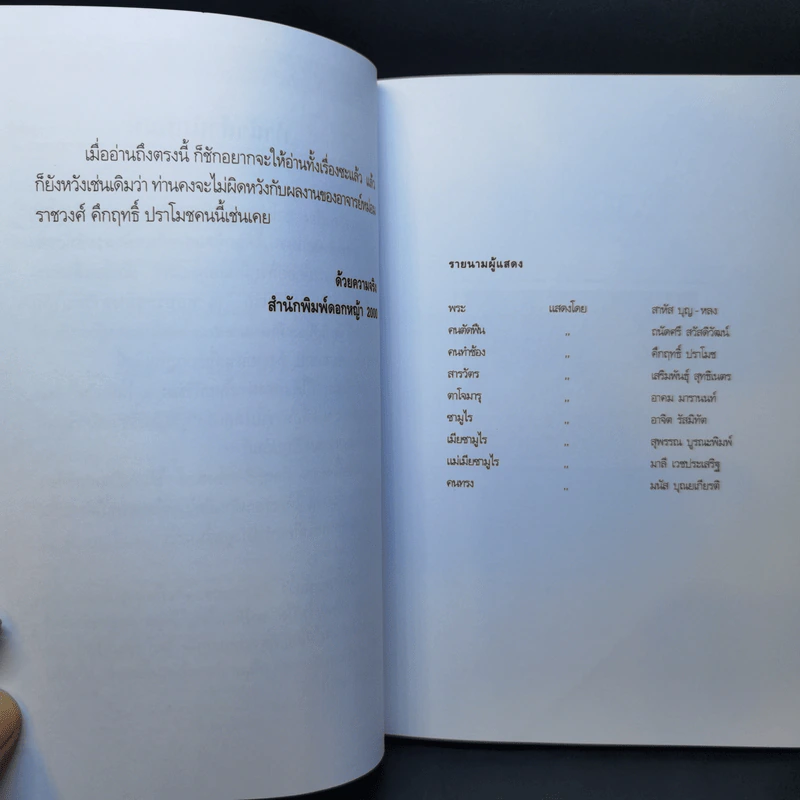 เมื่ออ่านถึงตรงนี้ ก็ชักอยากจะให้อ่านทั้งเรื่องซะแล้ว แล้ว
ก็ยังหวังเช่นเดิมว่า ท่านคงจะไม่ผิดหวังกับผลงานของอาจารย์หม่อม
ราชวงศ์ คึกฤทธิ์ ปราโมชคนนี้เช่นเคย
ด้วยความจริง
สำนักพิมพ์ดอกหญ้า 2000
รายนามผู้แสดง
พระ แสดงโดย สาหัส บุญ-หลง
คนตัดฟืน ,, ถนัดศรี สวัสดิวัฒน์
คนทำช้อง ,, คึกฤทธิ์ ปราโมช
สารวัตร ,, เสริมพันธุ์ สุทธิเนตร
ตาโจมารุ ,, อาคม มารานนท์
ซามูไร ,, อาจิต รัสมิทัต
เมียซามูไร ,, สุพรรณ บูรณะพิมพ์
แม่เมียซามูไร ,, มาลี เวชประเสริฐ
คนทรง ,, มนัส บุณยเกียรติ